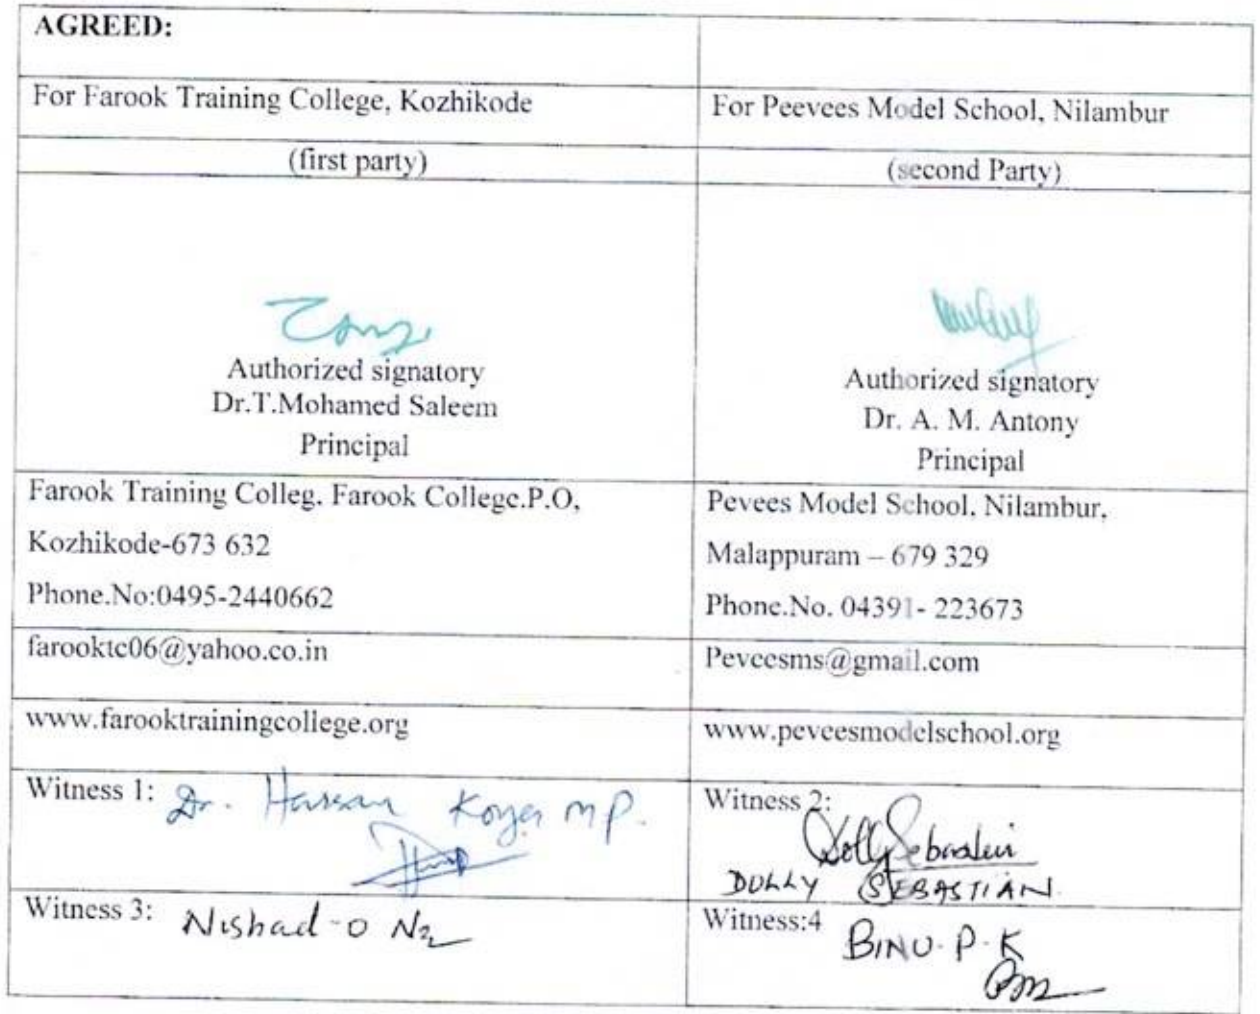 AGREED:
For Farook Training College, Kozhikode
For Peevees Model School, Nilambur
(first party)
(second Party)
Authorized signatory
Dr.T.Mohamed Saleem
Principal
Authorized signatory
Dr. A. M. Antony
Principal
Farook Training Colleg. Farook College.P.O,
Kozhikode-673 632
Phone.No:0495-2440662
Pevees Model School, Nilambur,
Malappuram – 679 329
Phone.No. 04391- 223673
farooktc06@yahoo.co.in
Peveesms@gmail.com
www.farooktrainingcollege.org
www.peveesmodelschool.org
Witness 1: Dr. Hassan Koya MP.
Witness 2:
Dolly Sebastian
DOLLY SEBASTIAN
Witness 3: Nishad - O
Witness:4 BINU. P. K